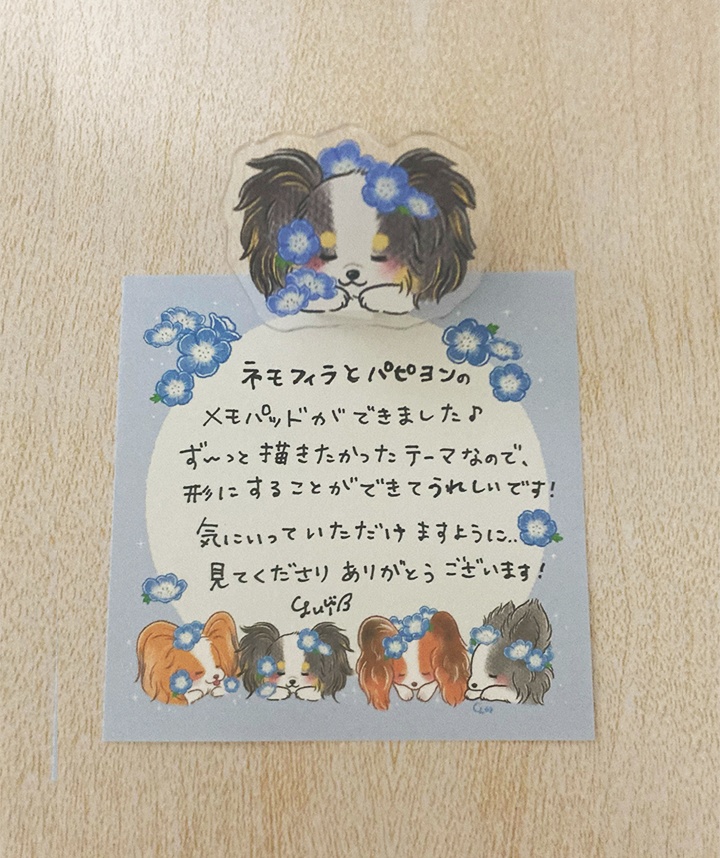 ネモフィラとパピヨンの
メモパッドができました♪
ず〜っと描きたかったテーマなので、
形にすることができてうれしいです!
気にいっていただけますように..
見てくださりありがとうございます!